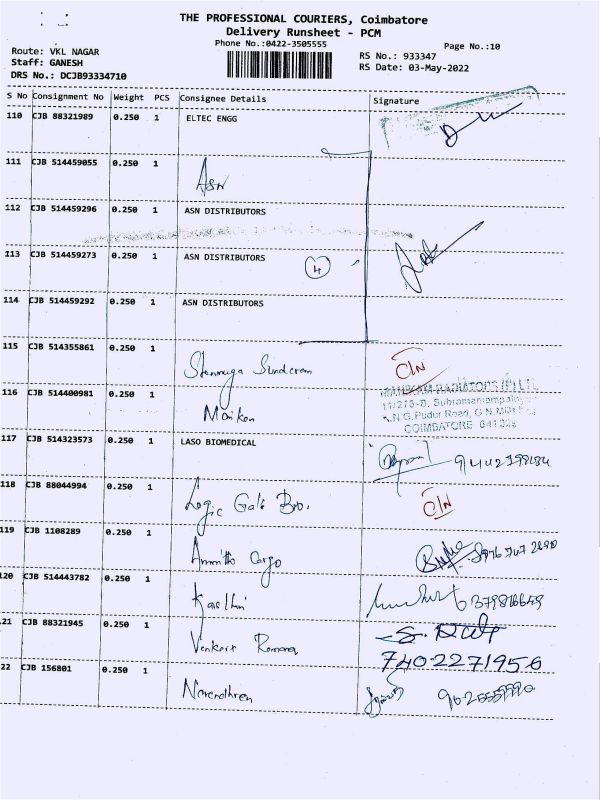 THE PROFESSIONAL COURIERS, Coimbatore
Delivery Runsheet - PCM
Phone No.:0422-3505555
Page No.:10
Route: VKL NAGAR
Staff: GANESH
DRS No.: DCJB93334710
RS No.: 933347
RS Date: 03-May-2022
S No Consignment No Weight PCS Consignee Details Signature
110 CJB 88321989 0.250 1 ELTEC ENGG
111 CJB 514459055 0.250 1 ASN
112 CJB 514459296 0.250 1 ASN DISTRIBUTORS
113 CJB 514459273 0.250 1 ASN DISTRIBUTORS 4
114 CJB 514459292 0.250 1 ASN DISTRIBUTORS
115 CJB 514355861 0.250 1 Sundaram
116 CJB 514400981 0.250 1
MANIKAM RADIATORS (P) LTD
COIMBATORE
117 CJB 514323573 0.250 1 LASO BIOMEDICAL
118 CJB 88044994 0.250 1 Logic
119 CJB 1108289 0.250 1 Cargo
120 CJB 514443782 0.250 1
21 CJB 88321945 0.250 1 Venkat Ramana
7402271956
22 CJB 156801 0.250 1 Narendhren